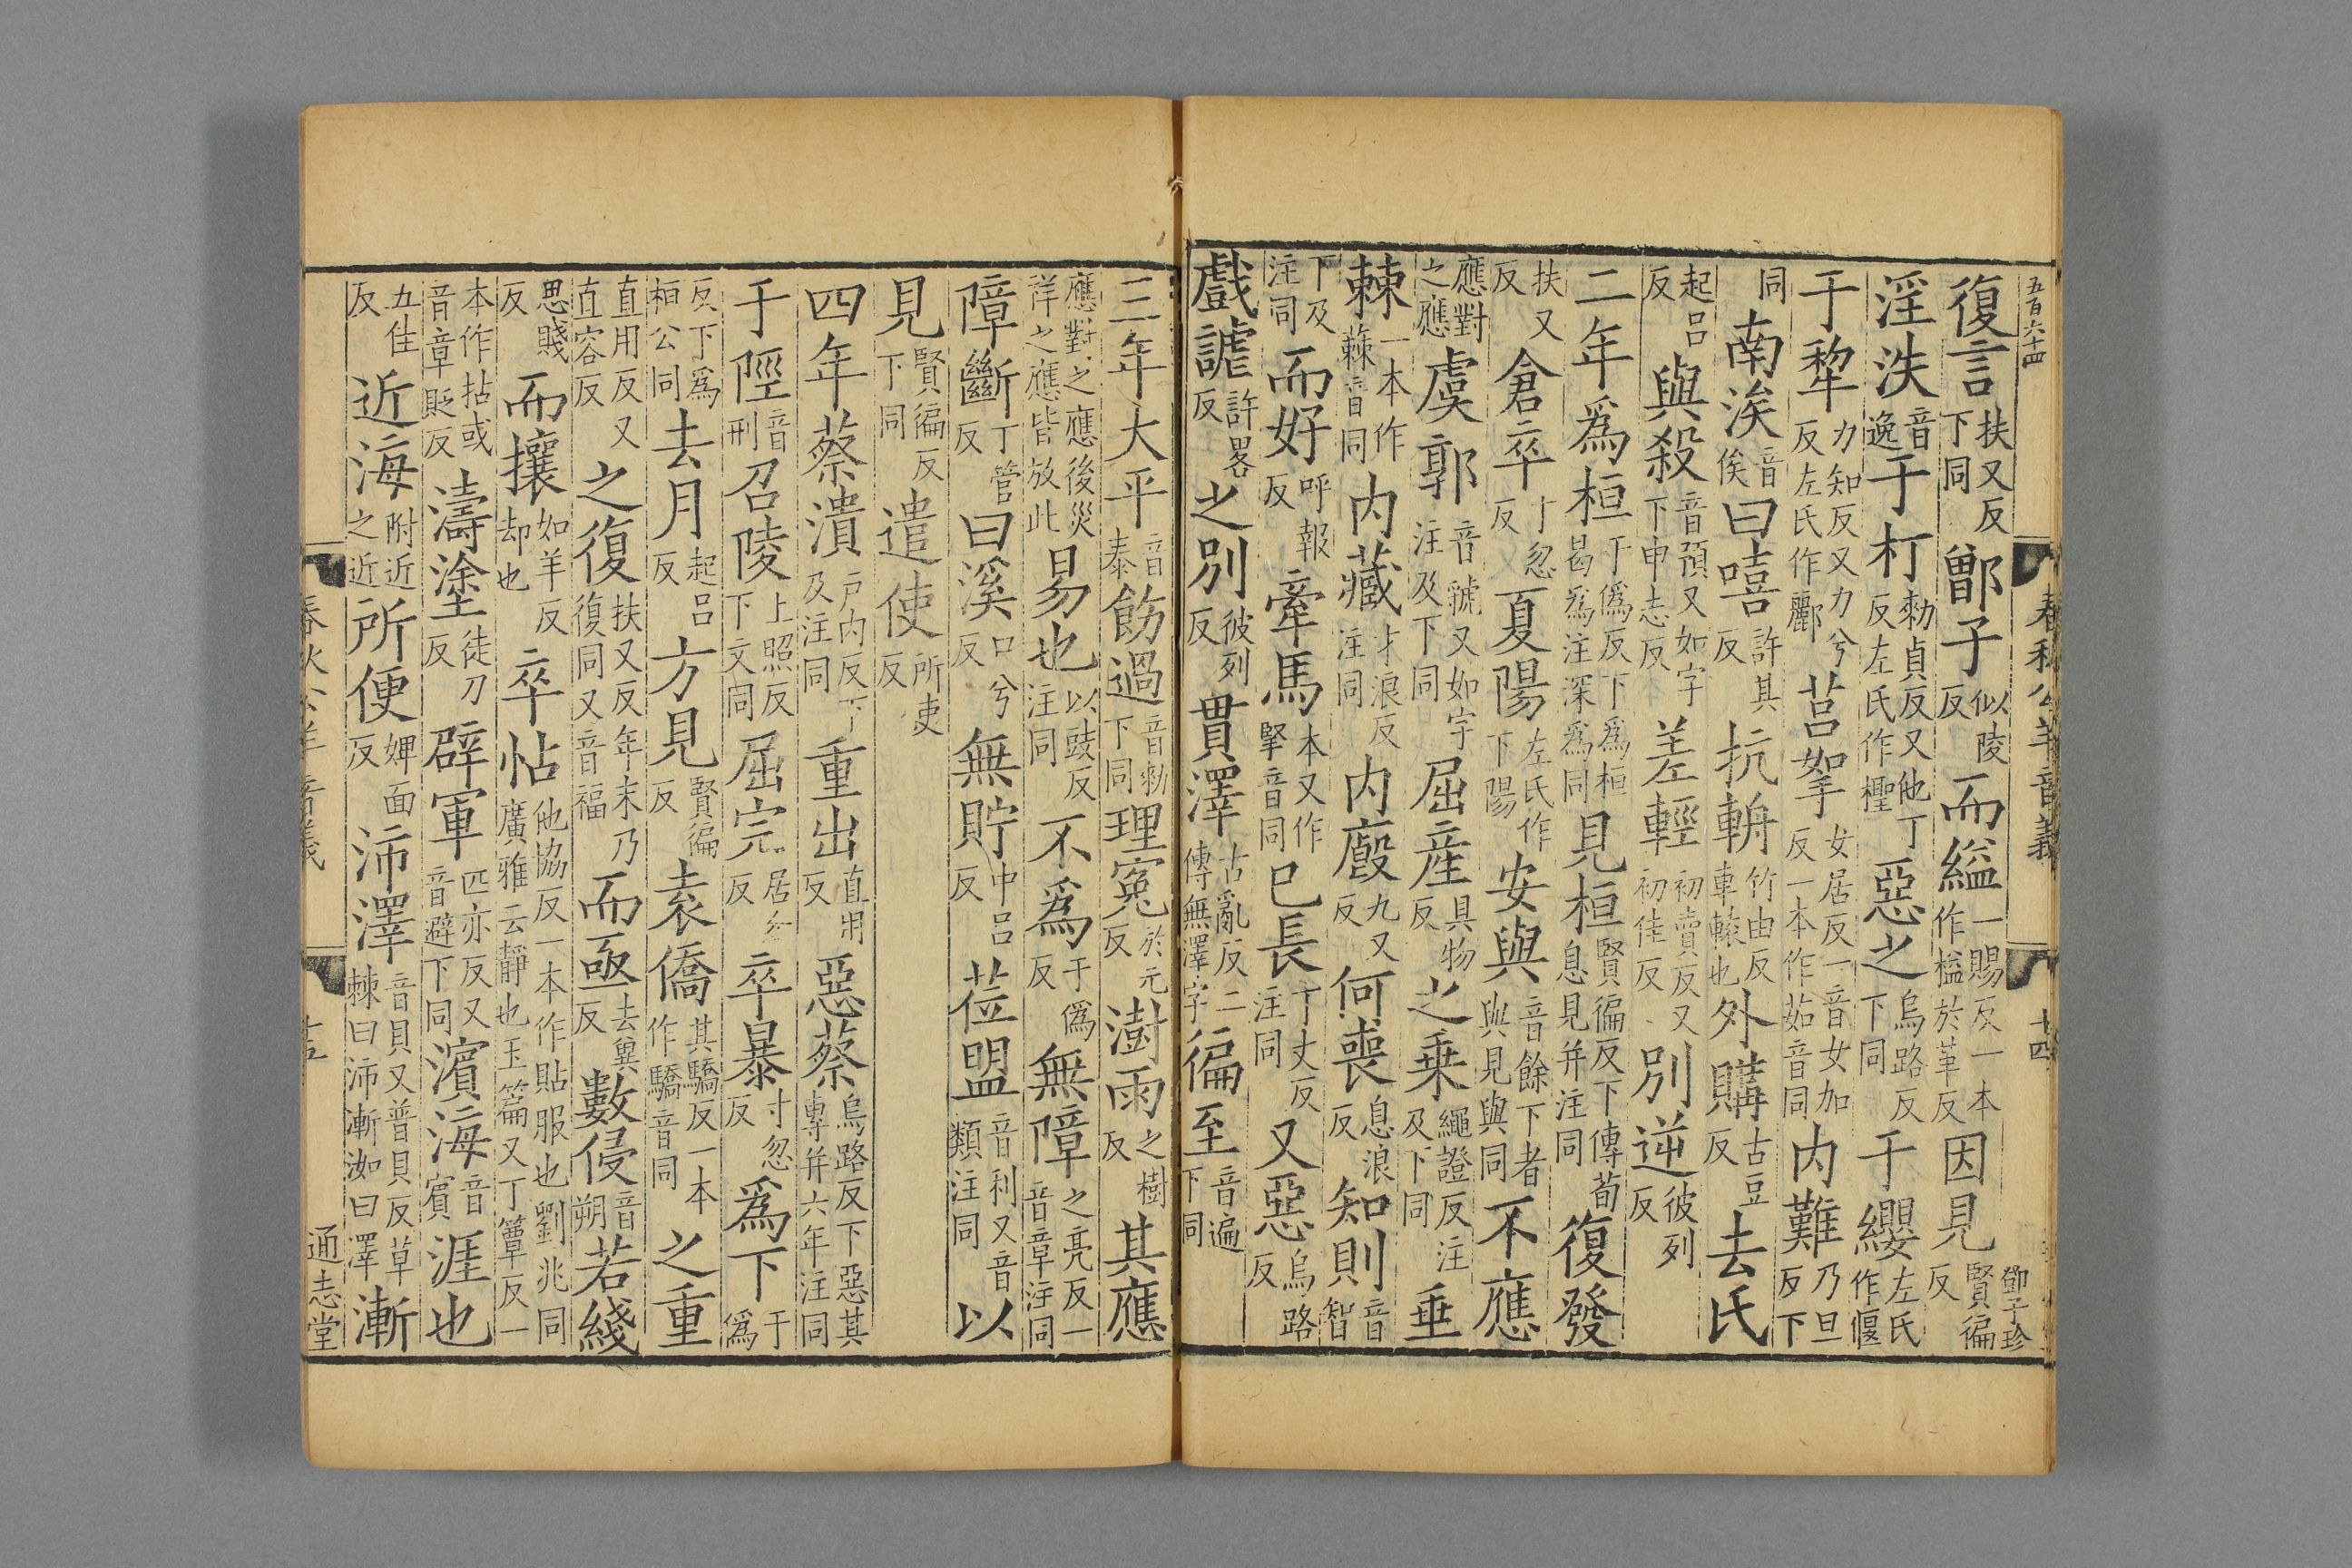 五百六十四
春秋公羊音義
十四
鄧子珍
復言扶又反下同鄫子似陵反而縊一賜反一本作搤於革反因見賢徧反
淫泆音逸于朾勑貞反又他丁反左氏作檉惡之烏路反下同于纓左氏作偃
于犂力知反又力兮反左氏作酈莒挐女居反一音女加反一本作茹音同内難乃旦反下
同南涘音俟曰嘻許其反抗輈竹由反車轅也外購古豆反去氏
起呂反與殺音預又如字下申志反差輕初賣反又初佳反別逆彼列反
二年爲桓于僞反下爲桓曷爲注深爲同見桓賢徧反下傳荀息見并注同復發
扶又反倉卒寸忽反夏陽左氏作下陽安與音餘下者與見與同不應
應對之應虞郭音虢又如字注及下同屈產具物反之乗繩證反注及下同垂
棘一本作蕀音同内藏才浪反注同内廄九又反何喪息浪反知則音智
下及注同而好呼報反牽馬本又作掔音同巳長丁丈反注同又惡烏路反
戲謔許畧反之別彼列反貫澤古亂反二傳無澤字徧至音遍下同
三年大平音泰飭過音勑下同理寃於元反澍雨之樹反其應
應對之應後災祥之應皆放此易也以豉反注同不爲于僞反無障之亮反一音章注同
障斷丁管反曰溪口兮反無貯中呂反莅盟音利又音類注同以
見賢徧反下同遣使所吏反
四年蔡潰户内反下及注同重出直用反惡蔡烏路反下惡其專并六年注同
于陘音刑召陵上照反下文同屈完居勿反卒暴寸忽反爲下于僞
反下爲桓公同去月起呂反方見賢徧反袁僑其驕反一本作驕音同之重
直用反又直容反之復扶又反年末乃復同又音福而亟去冀反數侵音朔若綫
思賤反而攘如羊反却也卒帖他協反一本作貼服也劉兆同廣雅云靜也玉篇又丁簟反一
本作拈或音章貶反濤塗徒刀反辟軍匹亦反又音避下同濱海音賓涯也
五佳反近海附近之近所便婢面反沛澤音貝又普貝反草棘曰沛漸洳曰澤漸
春秋公羊音義
十五
通志堂